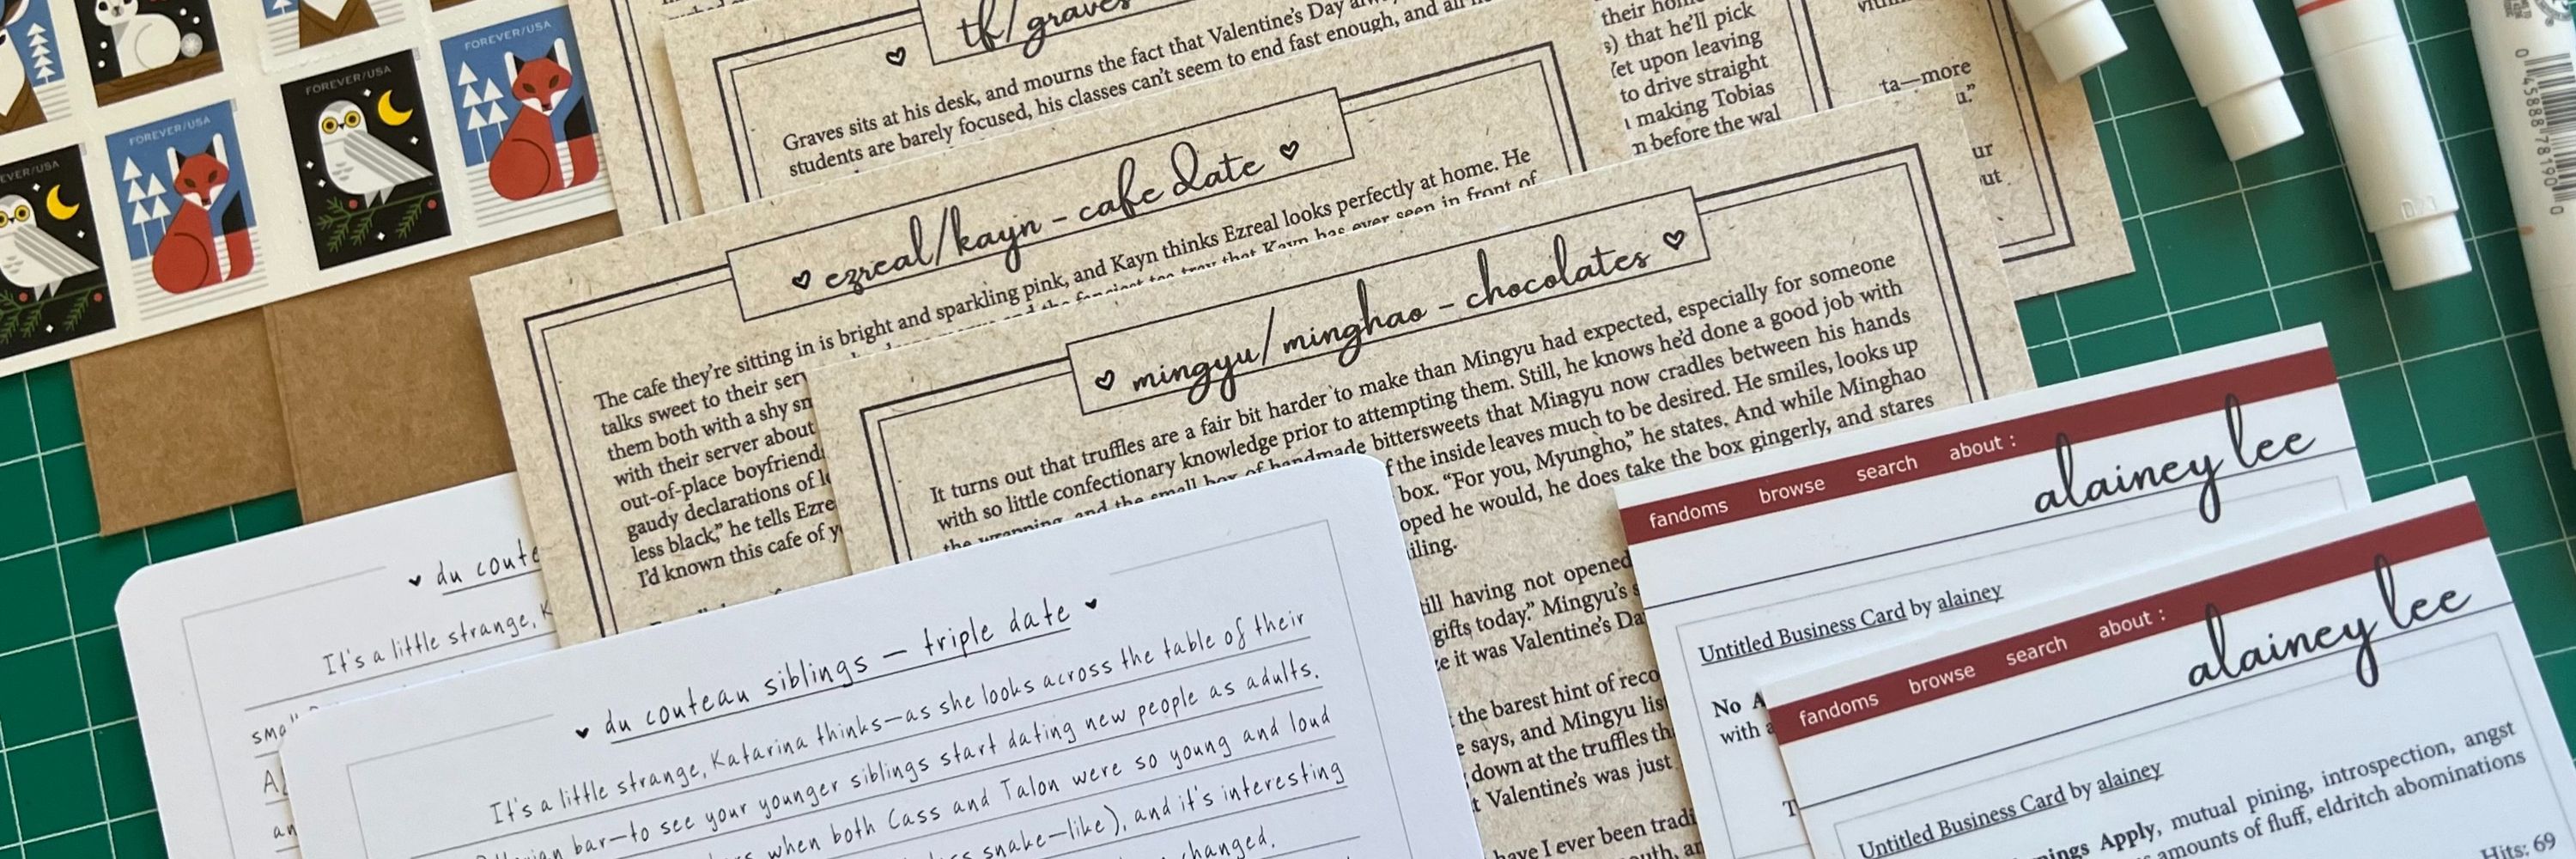 FOREVER/USA
FOREVER/USA
FOREVER/USA
FOREVER/USA
tf/graves
Graves sits at his desk, and mourns the fact that Valentine's Day
students are barely focused, his classes can't seem to end fast enough, and all
their
s) that he'll pick
upon leaving
to drive straight
making Tobias
n before the wal
ta—more
u."
ur
out
0 45888 78190 0
ezreal/kayn – cafe date
The cafe they're sitting in is bright and sparkling pink, and Kayn thinks Ezreal looks perfectly at home. He
talks sweet to their
that Kayn has ever seen in front of
them both with a shy
with their server about
out-of-place
gaudy declarations of
less black," he tells
I'd known this cafe of
mingyu/minghao – chocolates
It turns out that truffles are a fair bit harder to make than Mingyu had expected, especially for someone
with so little confectionary knowledge prior to attempting them. Still, he knows he'd done a good job with
the wrapping, and the small box of handmade bittersweets that Mingyu now cradles between his hands
f the inside leaves much to be desired. He smiles, looks up
box. "For you, Myungho," he states. And while Minghao
oped he would, he does take the box gingerly, and stares
iling.
ill having not opened
gifts today." Mingyu's s
it was Valentine's Da
the barest hint of reco
says, and Mingyu lis
down at the truffles th
t Valentine's was just
have I ever been tradi
du coute
It's a little strange, K
sma
A
an
du couteau siblings — triple date
It's a little strange, Katarina thinks—as she looks across the table of their
bar—to see your younger siblings start dating new people as adults.
when both Cass and Talon were so young and loud
snake-like), and it's interesting
changed.
fandoms browse search about :
alainey lee
Untitled Business Card by alainey
No A
with a
T
fandoms browse search about :
alainey lee
Untitled Business Card by alainey
ings Apply, mutual pining, introspection, angst
amounts of fluff, eldritch abominations
Hits: 69